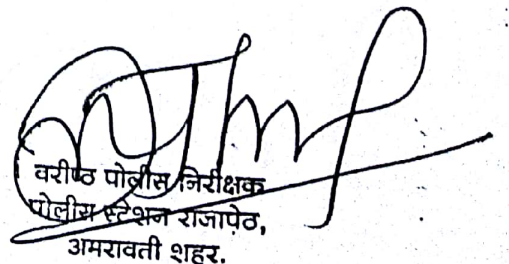 वरीष्ठ पोलीस निरीक्षक
पोलीस स्टेशन राजापेठ,
अमरावती शहर.